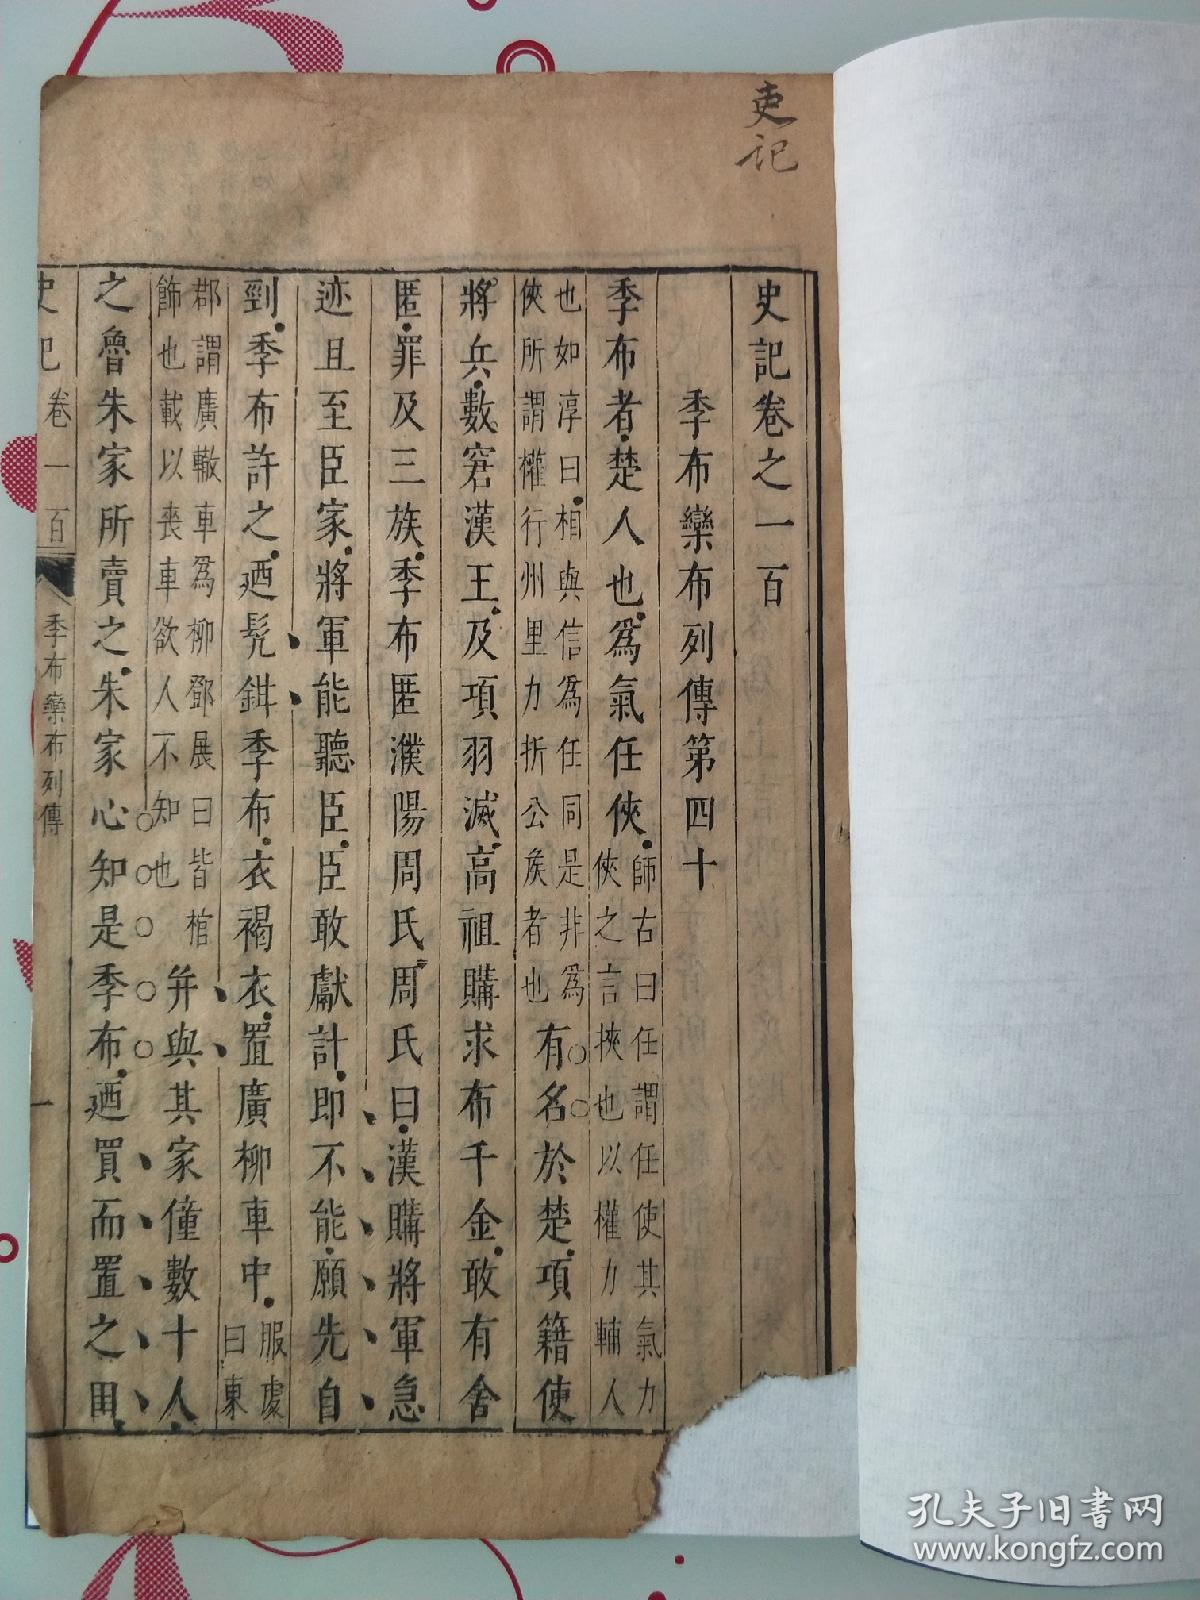 史记
史記卷之一百
季布欒布列傳第四十
季布者楚人也爲氣任俠師古曰任謂任使其氣力俠之言挾也以權力輔人
也如淳曰相與信爲任同是非爲俠所謂權行州里力折公矦者也有名於楚項籍使
將兵數窘漢王及項羽滅高祖購求布千金敢有舍
匿罪及三族季布匿濮陽周氏周氏曰漢購將軍急
迹且至臣家將軍能聽臣臣敢獻計卽不能願先自
剄季布許之廼髡鉗季布衣褐衣置廣柳車中服虔曰東
郡謂廣轍車爲柳鄧展曰皆棺飾也載以喪車欲人不知也幷與其家僮數十人
之魯朱家所賣之朱家心知是季布廼買而置之田
史記 卷一百 季布欒布列傳 一
孔夫子旧书网
www.kongfz.com